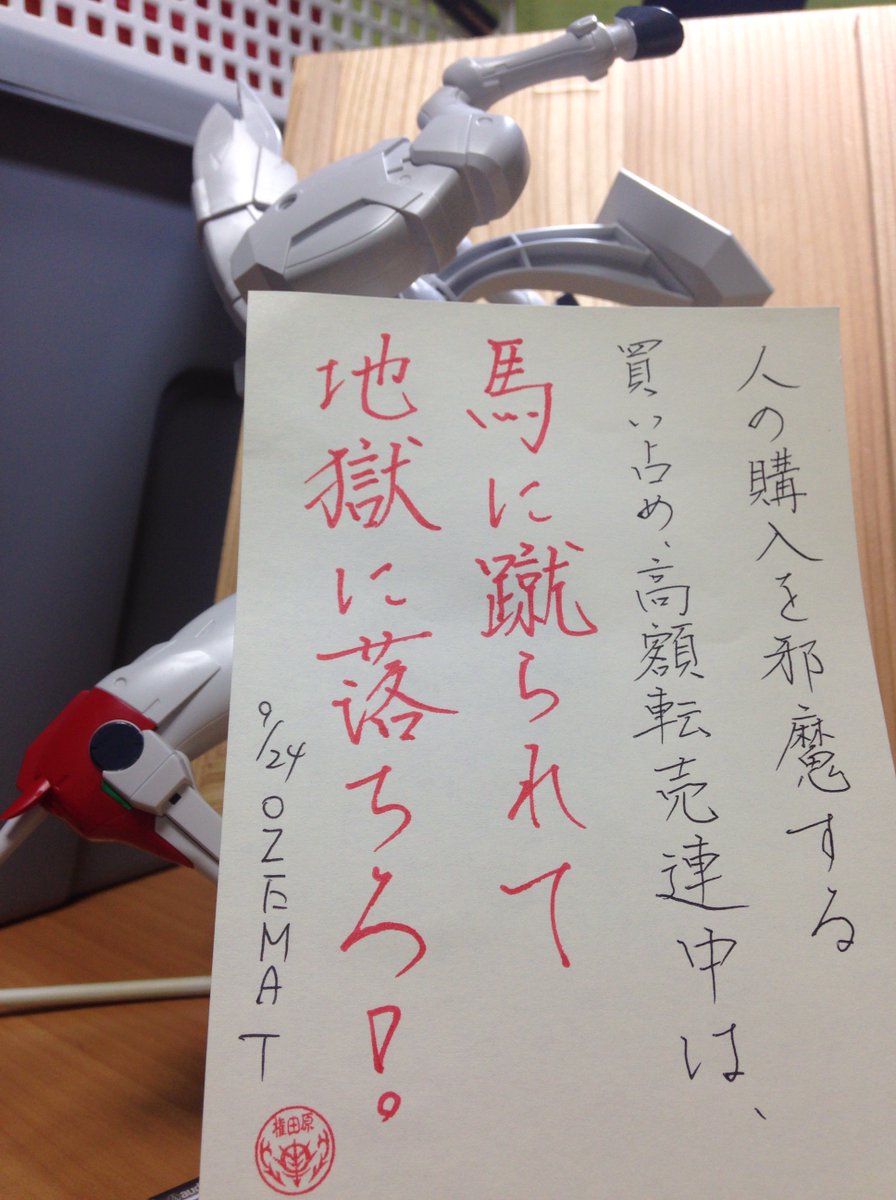 人の購入を邪魔する
買い占め、高額転売連中は、
馬に蹴られて
地獄に落ちろ!。
9/24 OZ
MAT
権田原